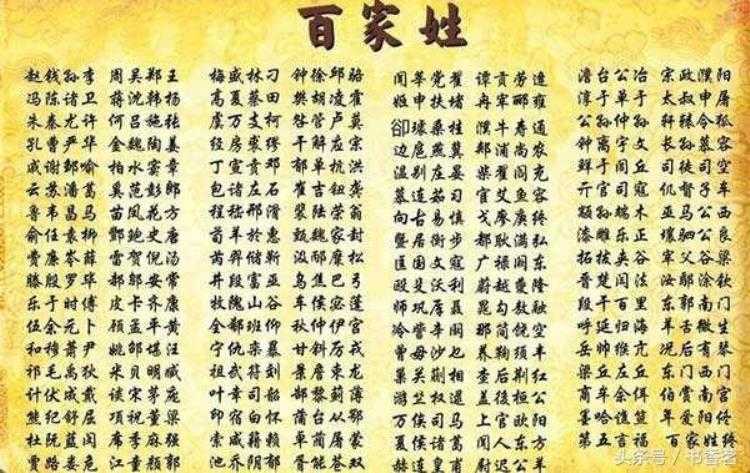 百家姓
赵钱孙李 周吴郑王
冯陈诸卫 蒋沈韩杨
朱秦尤许 何吕施张
孔曹严华 金魏陶姜
戚谢邹喻 柏水窦章
云苏潘葛 奚范彭郎
鲁韦昌马 苗凤花方
俞任袁柳 酆鲍史唐
费廉岑薛 雷贺倪汤
滕殷罗毕 郝邬安常
乐于时傅 皮卡齐康
伍余元卜 顾孟平黄
和穆萧尹 姚邵堪汪
祁毛禹狄 米贝明臧
计伏成戴 谈宋茅庞
熊纪舒屈 项祝董梁
杜阮蓝闵 席季麻强
贾路娄危 江童颜郭
梅盛林刁 钟徐邱骆
高夏蔡田 樊胡凌霍
虞万支柯 昝管卢莫
经房裘缪 干解应宗
丁宣贲邓 郁单杭洪
包诸左石 崔吉钮龚
程嵇邢滑 裴陆荣翁
荀羊於惠 甄魏家封
芮羿储靳 汲邴糜松
井段富巫 乌焦巴弓
牧隗山谷 车侯宓蓬
全郗班仰 秋仲伊宫
宁仇栾暴 甘斜厉戎
祖武符刘 景詹束龙
叶幸司韶 郜黎蓟薄
印宿白怀 蒲台从鄂
索咸籍赖 卓蔺屠蒙
池乔阴郁 胥能苍双
闻莘党翟 谭贡劳逄
姬申扶堵 冉宰郦雍
卻璩桑桂 濮牛寿通
边扈燕冀 郏浦尚农
温别庄晏 柴瞿阎充
慕连茹习 宦艾鱼容
向古易慎 戈廖庾终
暨居衡步 都耿满弘
匡国文寇 广禄阙东
欧殳沃利 蔚越夔隆
师巩厍聂 晁勾敖融
冷訾辛阚 那简饶空
曾毋沙乜 养鞠须丰
巢关蒯相 查后荆红
游竺权逯 盖益桓公
万俟司马 上官欧阳
夏侯诸葛 闻人东方
赫连皇甫 尉迟公羊
澹台公冶 宗政濮阳
淳于单于 太叔申屠
公孙仲孙 轩辕令狐
钟离宇文 长孙慕容
鲜于闾丘 司徒司空
亓官司寇 仉督子车
颛孙端木 巫马公西
漆雕乐正 壤驷公良
拓拔夹谷 宰父谷梁
晋楚闫法 汝鄢涂钦
段干百里 东郭南门
呼延归海 羊舌微生
岳帅缑亢 况后有琴
梁丘左丘 东门西门
商牟佘佴 伯赏南宫
墨哈谯笪 年爱阳佟
第五言福 百家姓终
头条号 / 书香茗